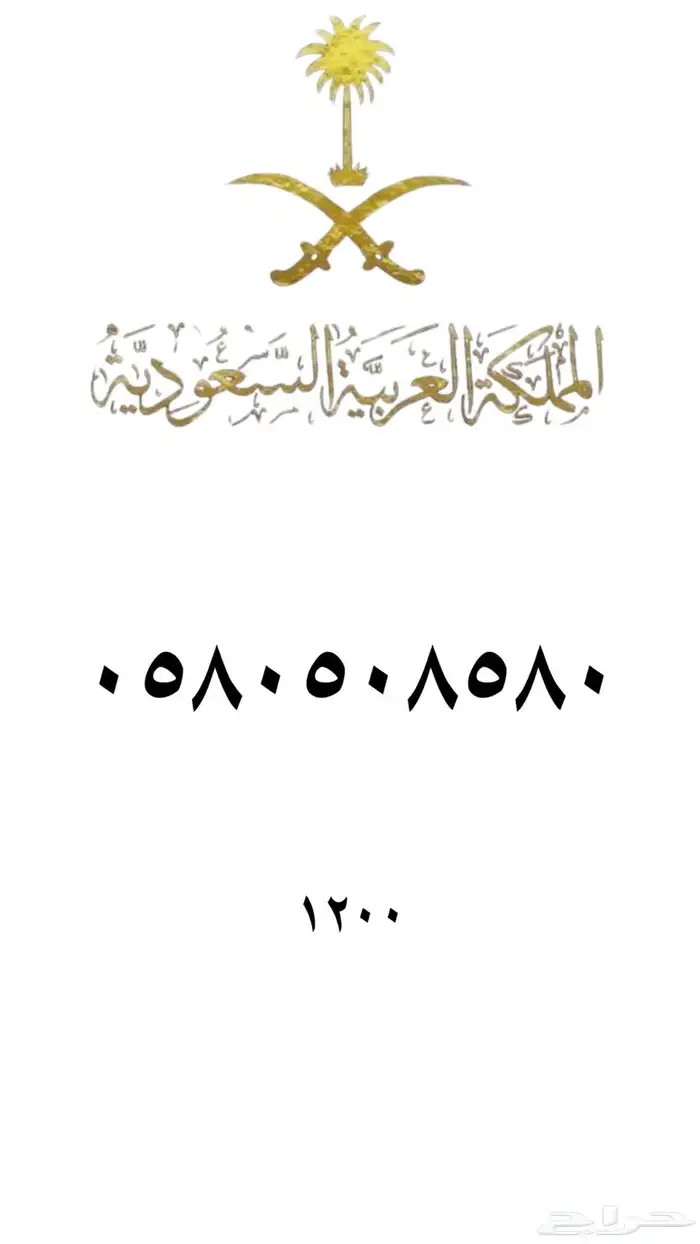 المملكة العربية السعودية
٠٥٨٠٥٠٨٥٨٠
١٢٠٠
حراج